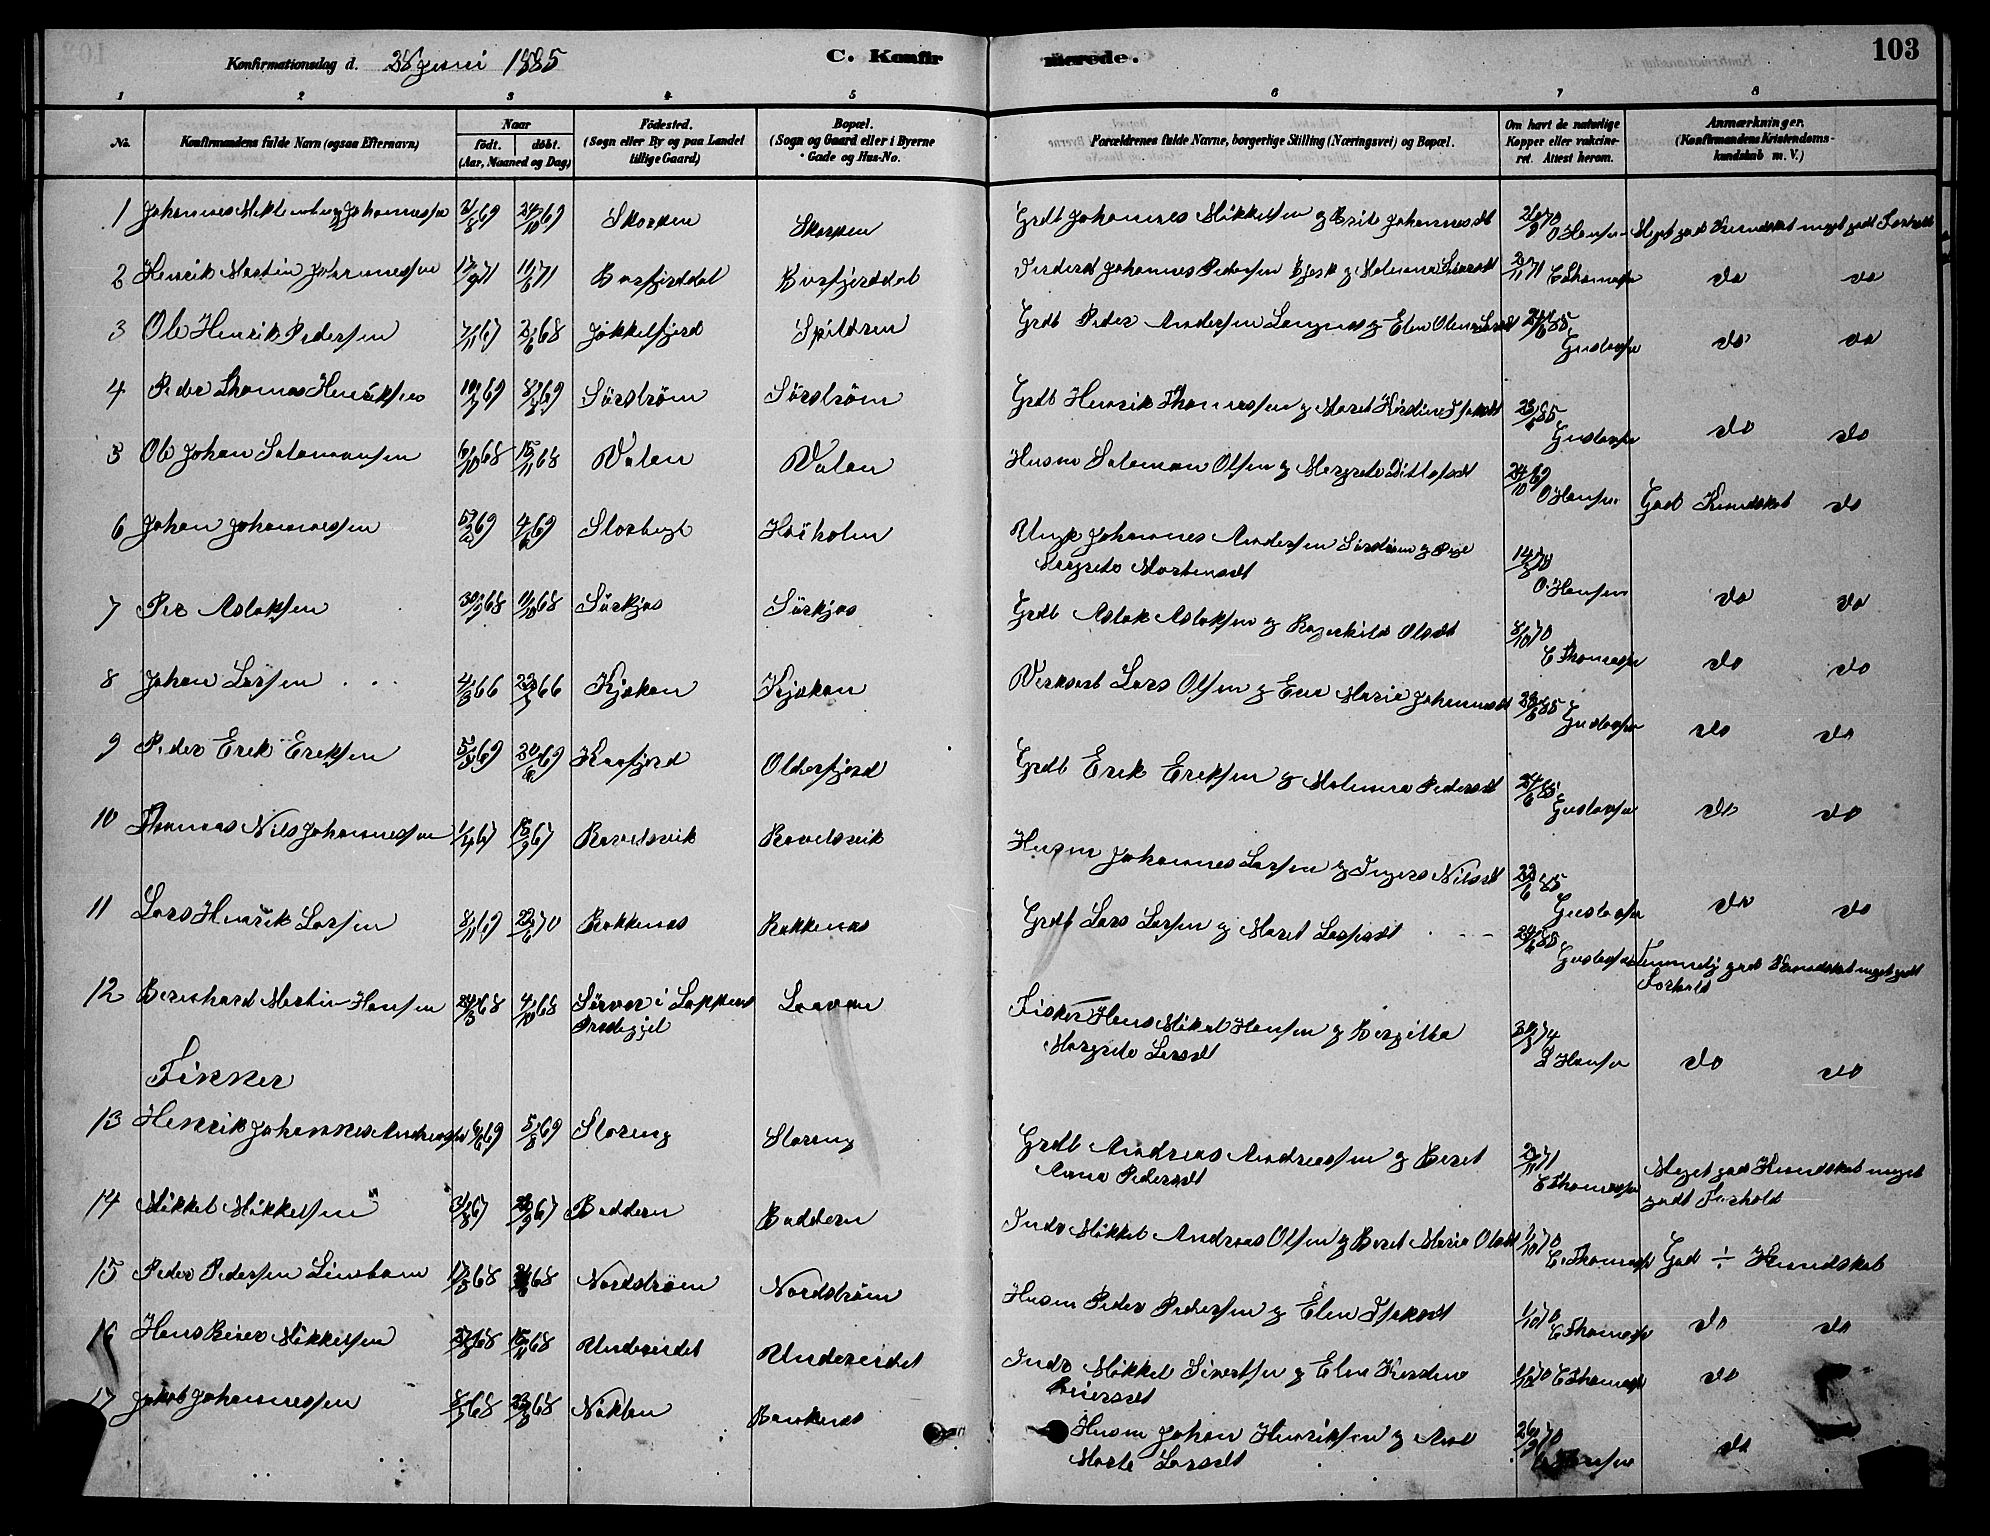 103
Konfirmationsdag d. 28 Juni 1885 C. Konfirmerede.
1 2 3 4 5 6 7 8
No. Konfirmandens fulde Navn (ogsaa Efternavn) Naar født. døbt. (Aar, Maaned og Dag) Fødested. (Sogn eller By og paa Landet tillige Gaard) Bopæl. (Sogn og Gaard eller i Byerne Gade og Hus-No. Forældrenes fulde Navne, borgerlige Stilling (Næringsvei) og Bopæl. Om havt de naturlige Kopper eller vakcineret. Attest herom. Anmærkninger. (Konfirmandens Kristendomskundskab m. V.)
1 Johannes Johannessen 24/10 69 Skorpen Skorpen Grdb Johannes Mikkelsen og Brit Johannesdt 26/9 70 O Hansen Meget god Kundskab meget godt Forhold
2 Henrik Martin Johannessen 17/2 71 11/6 71 Burfjorddal Burfjorddal Johannes Pedersen og 2/11 71 C Thomassen do do
3 Ole Henrik Pedersen 7/11 67 2/6 68 Jøkkelfjord Spildren Grdb Peder Andersen og Elen 24/6 85 Gustavsen do do
4 Peder Thomas Henriksen 10/7 69 8/8 69 Sørstrøm Sørstrøm Grdb Henrik Thomassen og Maret Kirstine Isaksdt 23/6 85 Gustavsen do do
5 Ole Johan Salamonsen 6/10 68 15/11 68 Valan Valan Husm Salamon Olsen og Margrete 24/10 69 O Hansen God Kundskab do
6 Johan Johannessen 5/2 69 4/6 69 Storbugt Høiholm Ungk Johannes Andersen Sørstrøm og Pige
Margrete Mortensdt 14/3 70 O Hansen do do
7 Per Aslaksen 30/9 68 11/10 68 Sørkjos Sørkjos Grdb Aslak Aslaksen og Ragnhild Olsdt 8/10 70 C Thomassen do do
8 Johan Larsen 4/3 66 22/7 66 Kjækan Kjækan Lars Olsen og Maria Johannesdt 23/6 85 Gustavsen do do
9 Peder Erik Eriksen 5/5 69 20/6 69 Kaafjord Olderfjord Grdb Erik Eriksen og Malenna Pedersdt 24/6 85 Gustavsen do do
10 Thomas Nils Johannessen 1/4 67 15/9 67 Ravelsvik Ravelsvik Husm Johannes Larsen og Ingers Nilsdt 22/6 85 Gustavsen do do
11 Lars Henrik Larsen 8/11 69 22/6 70 Bakkenes Bakkenes Grdb Lars Larsen og Maret Larsdt 24/6 85 Gustavsen Temmelig god Kundskab meget godt
Forhold
12 Bernhard Martin Hansen 24/3 68 4/10 68 Sørvær i Loppens Laavan Fisker Hans Mikal Hansen og Bergitta
Prestegjel Margrete Larsdt 30/5 74 Hansen do do
Finner
13 Henrik Johannes Andreassen 6/6 69 5/8 69 Storeng Storeng Grdb Andreas Andreassen og Beret
Anna Pedersdt 2/11 71 C Thomassen Meget god Kundskab meget
godt Forhold
14 Mikkel Mikkelsen 3/8 67 22/9 67 Baddern Baddern Indr Mikkel Andreas Olsen og Beret Maria Olsdt 1/10 70 C Thomassen God ÷ Kundskab
15 Peder Pedersen 68 68 Nordstrøm Nordstrøm Husm Peder Pedersen og Elen Isaksdt 1/10 70 C Thomassen do do
16 Hans Beier Mikkelsen 27/8 68 15/11 68 Undereidet Undereidet Indr Mikkel Sivertsen og Elen Kirstine
Beiersdt 1/10 70 C Thomassen do
17 Jakob Johannessen 8/7 68 23/8 68 Noklan Husm Johan Henriksen og
Marte Larsdt 26/9 70 Hansen do